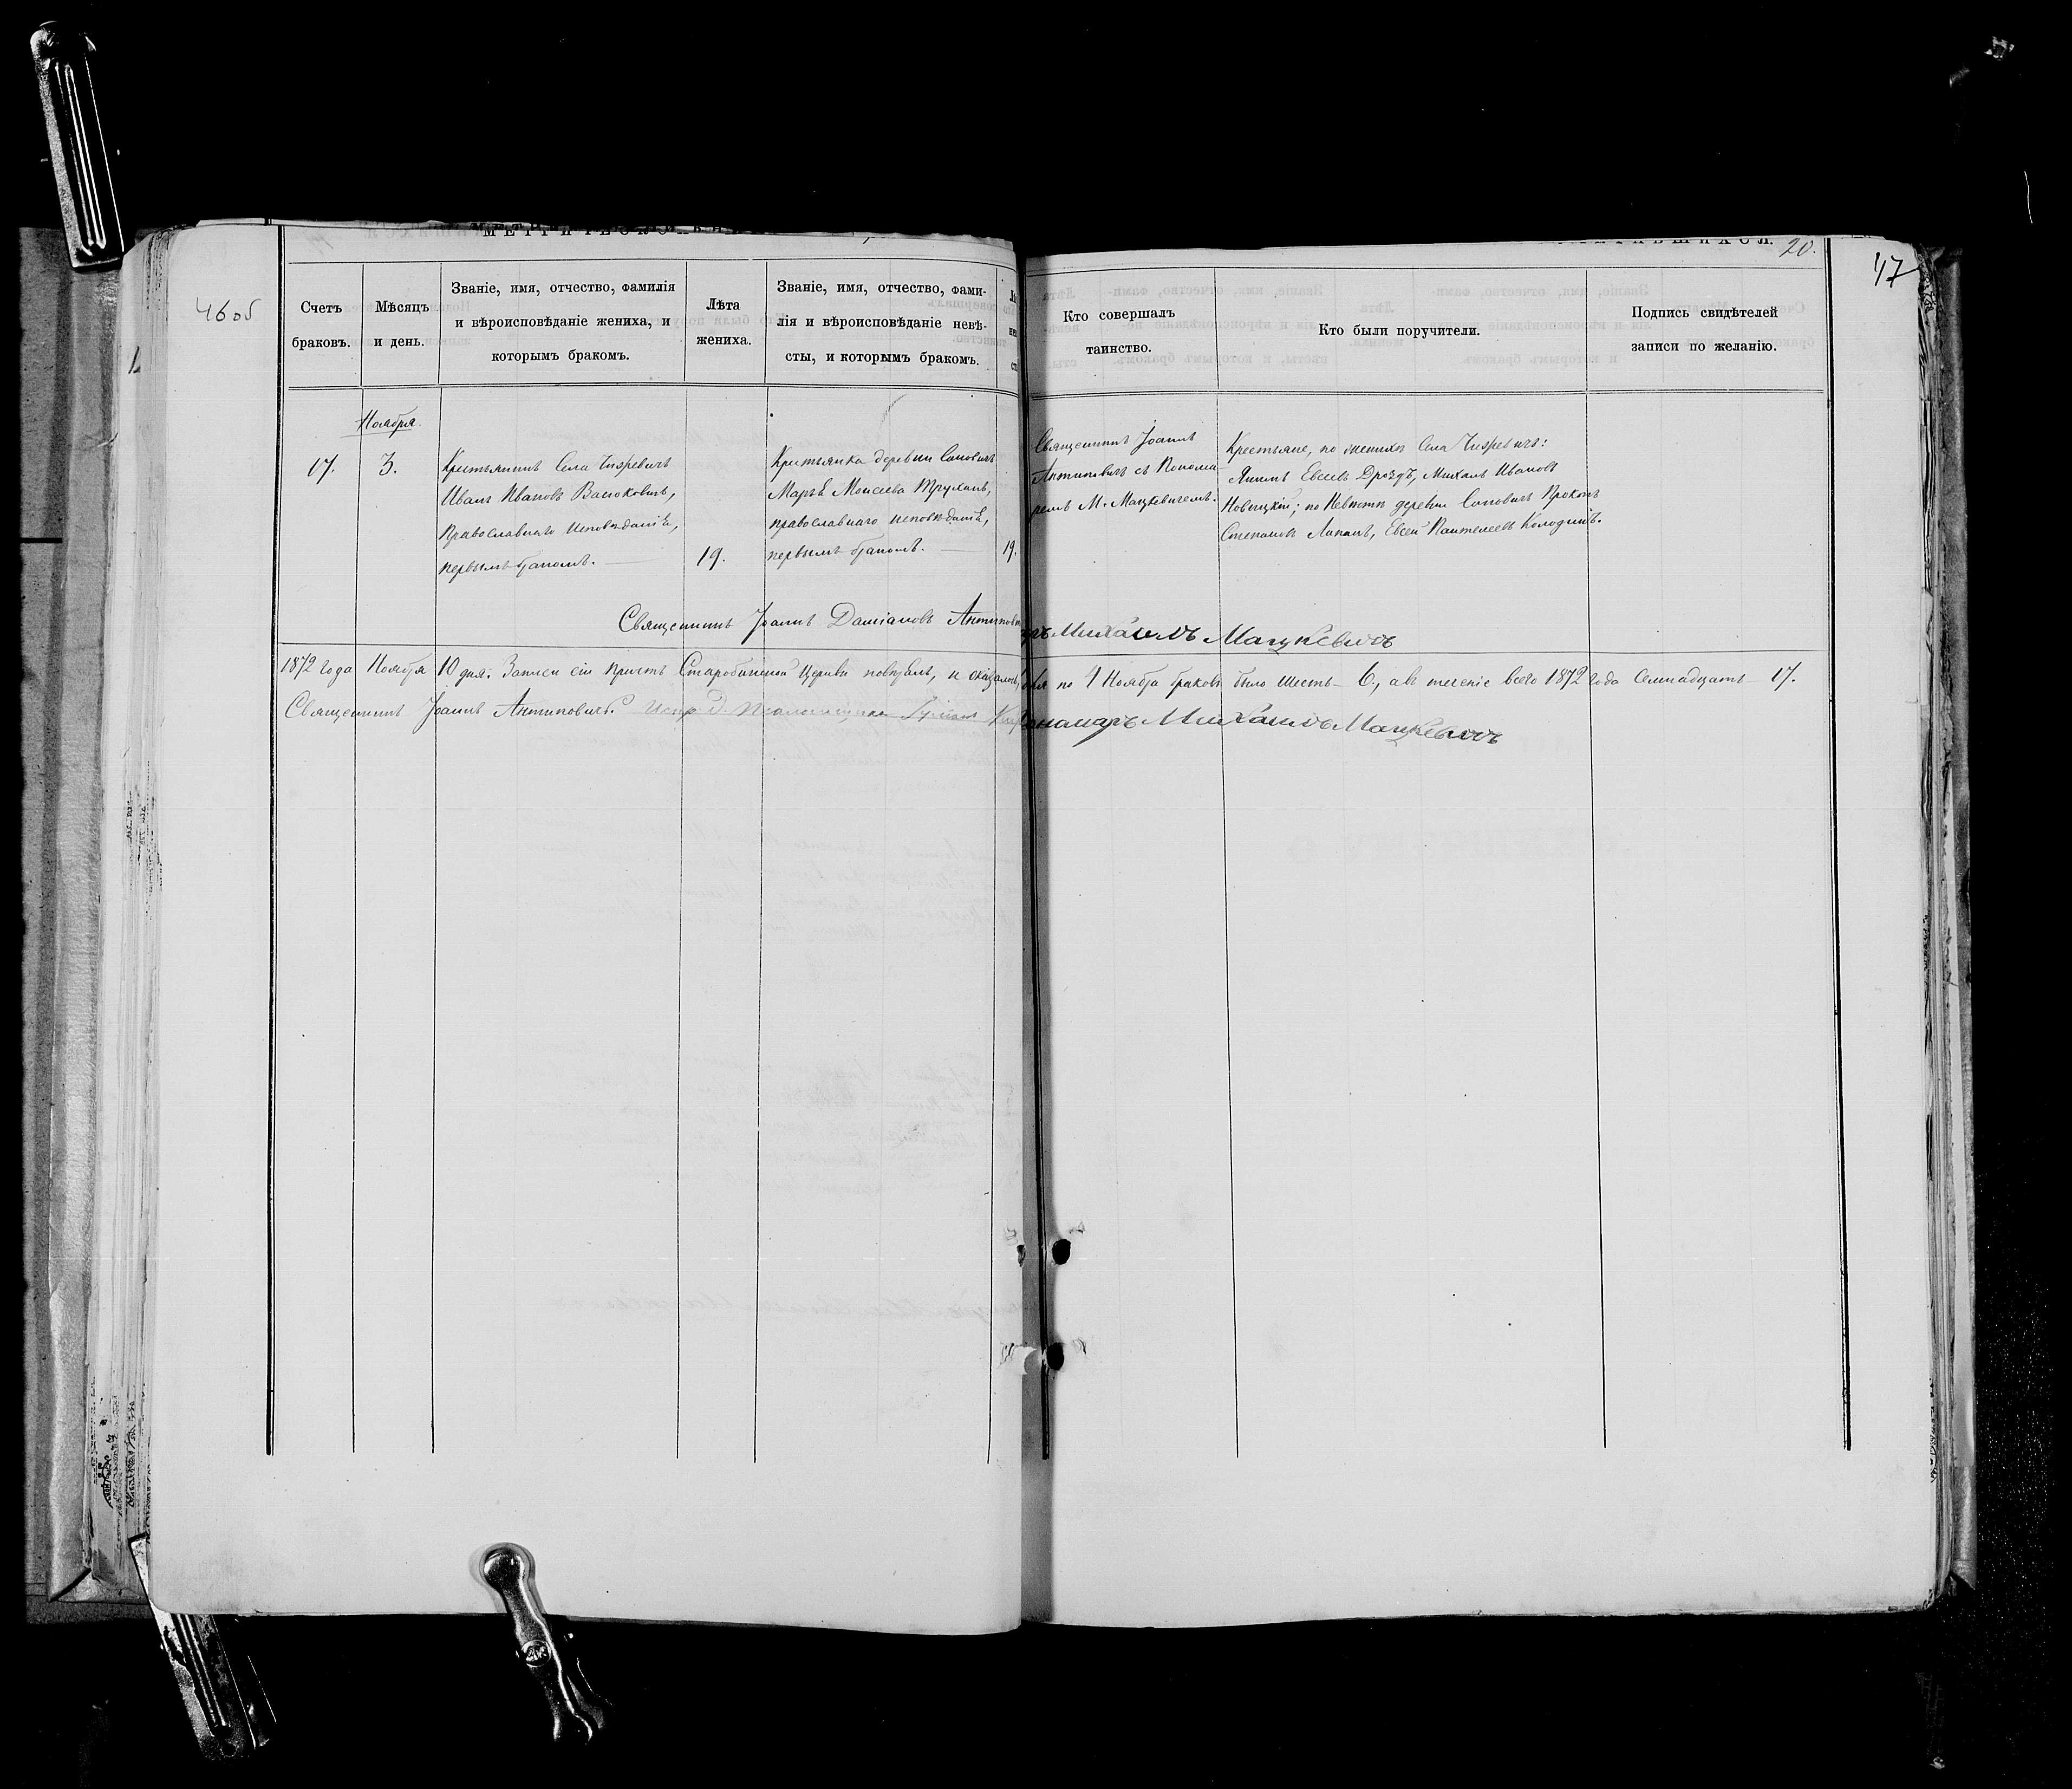 46 об
20.
47
Счетъ
браковъ.
Мѣсяцъ
и день.
Званіе, имя, отчество, фамилія
и вѣроисповѣданіе жениха, и
которымъ бракомъ.
Лѣта
жениха.
Званіе, имя, отчество, фами-
лія и вѣроисповѣданіе невѣ-
сты, и которымъ бракомъ.
Кто совершалъ
таинство.
Кто были поручители.
Подпись свидѣтелей
записи по желанію.
Ноября.
17.
3.
Крестьянинъ Села Чижевичъ
Иванъ Ивановъ Васюковичъ,
Православнаго исповѣданія,
первымъ бракомъ.
19.
Крестьянка деревни Саковичъ
Марья Моисеева Труханъ,
православнаго исповѣданія,
первымъ бракомъ.
19.
Священникъ Іоаннъ
Антиповичъ съ Понома-
ремъ М. Мацкевичемъ.
Крестьяне, по женихѣ Села Чижевичъ:
Якимъ Евсеевъ Дроздъ, Михаилъ Ивановъ
Новицкій; по Невѣстѣ деревни Саковичъ Прокопъ
Степановъ Лапанъ, Евсей Пантелеевъ Колодничъ.
Священникъ Іоаннъ Даміановъ Антипович
Михаилъ Мацкевичъ
1872 года Ноября 10 дня. Записи сіи Причтъ Старобинской Церкви повѣрялъ, и оказалось, по 1 Ноября браковъ было шесть 6., а въ теченіе всего 1872 года Семнадцать 17.
Священникъ Іоаннъ Антиповичъ. Испр. д. Псаломщика Пономарь Михаилъ Мацкевичъ